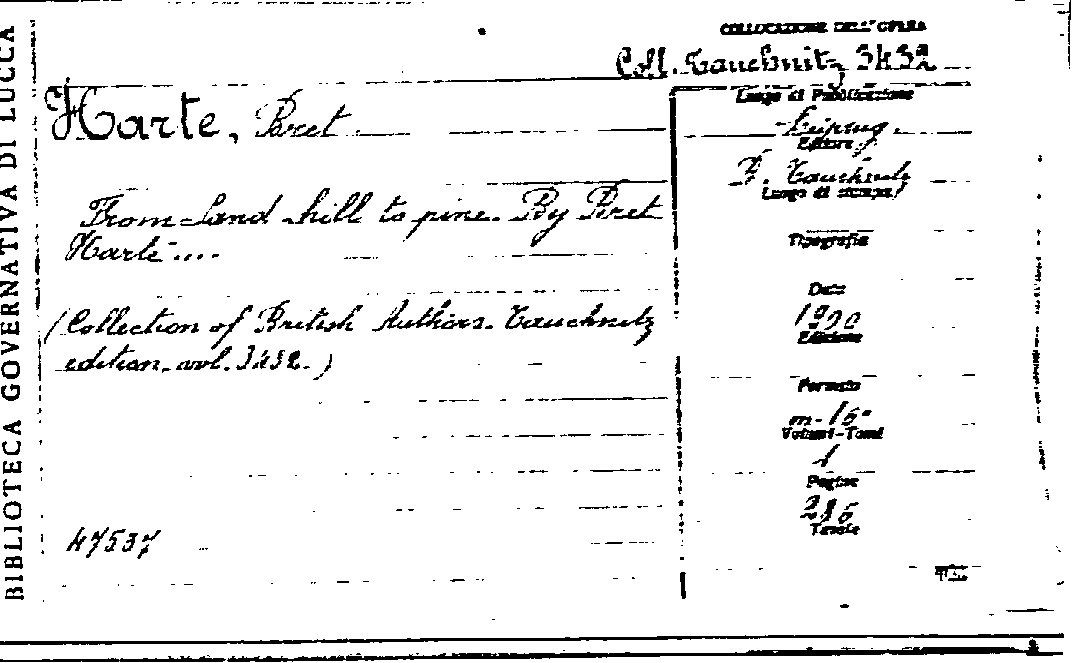 BIBLIOTECA GOVERNATIVA DI LUCCA
COLLOCAZIONE DELL'OPERA
Coll. Tauchnitz 3432
Harte, Bret
From Sand hill to pine. By Bret
Harte....
(Collection of British Authors. Tauchnitz
edition. vol. 3432.)
47537
Luogo di Pubblicazione
Leipzig.
Editore
B. Tauchnitz
Luogo di stampa
Tipografia
Data
1900
Edizione
Formato
m-16°
Volumi-Tomi
1
Pagine
286
Tavole